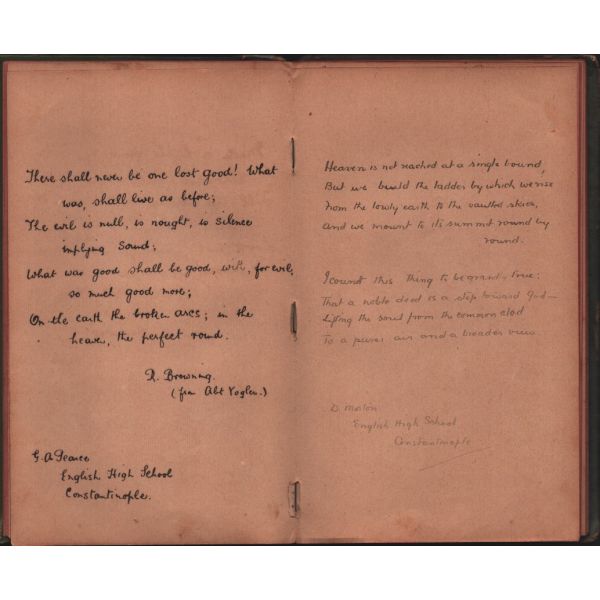 There shall never be one lost good! What
was, shall live as before;
The evil is null, is nought, is silence
implying sound;
What was good shall be good, with, for evil,
so much good more;
On the earth the broken arcs; in the
heaven, the perfect round.
R. Browning.
(from Abt Vogler.)
G. A. Pearce
English High School
Constantinople.
Heaven is not reached at a single bound,
But we build the ladder by which we rise
From the lowly earth to the vaulted skies,
and we mount to its summit round by
round.
I count this thing to be grandly true:
That a noble deed is a step toward God—
Lifting the soul from the common clod
To a purer air and a broader view.
D.
English High School
Constantinople